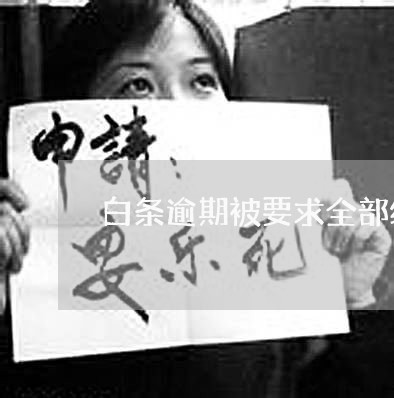 申請：
要乐死
白条逾期被要求全部